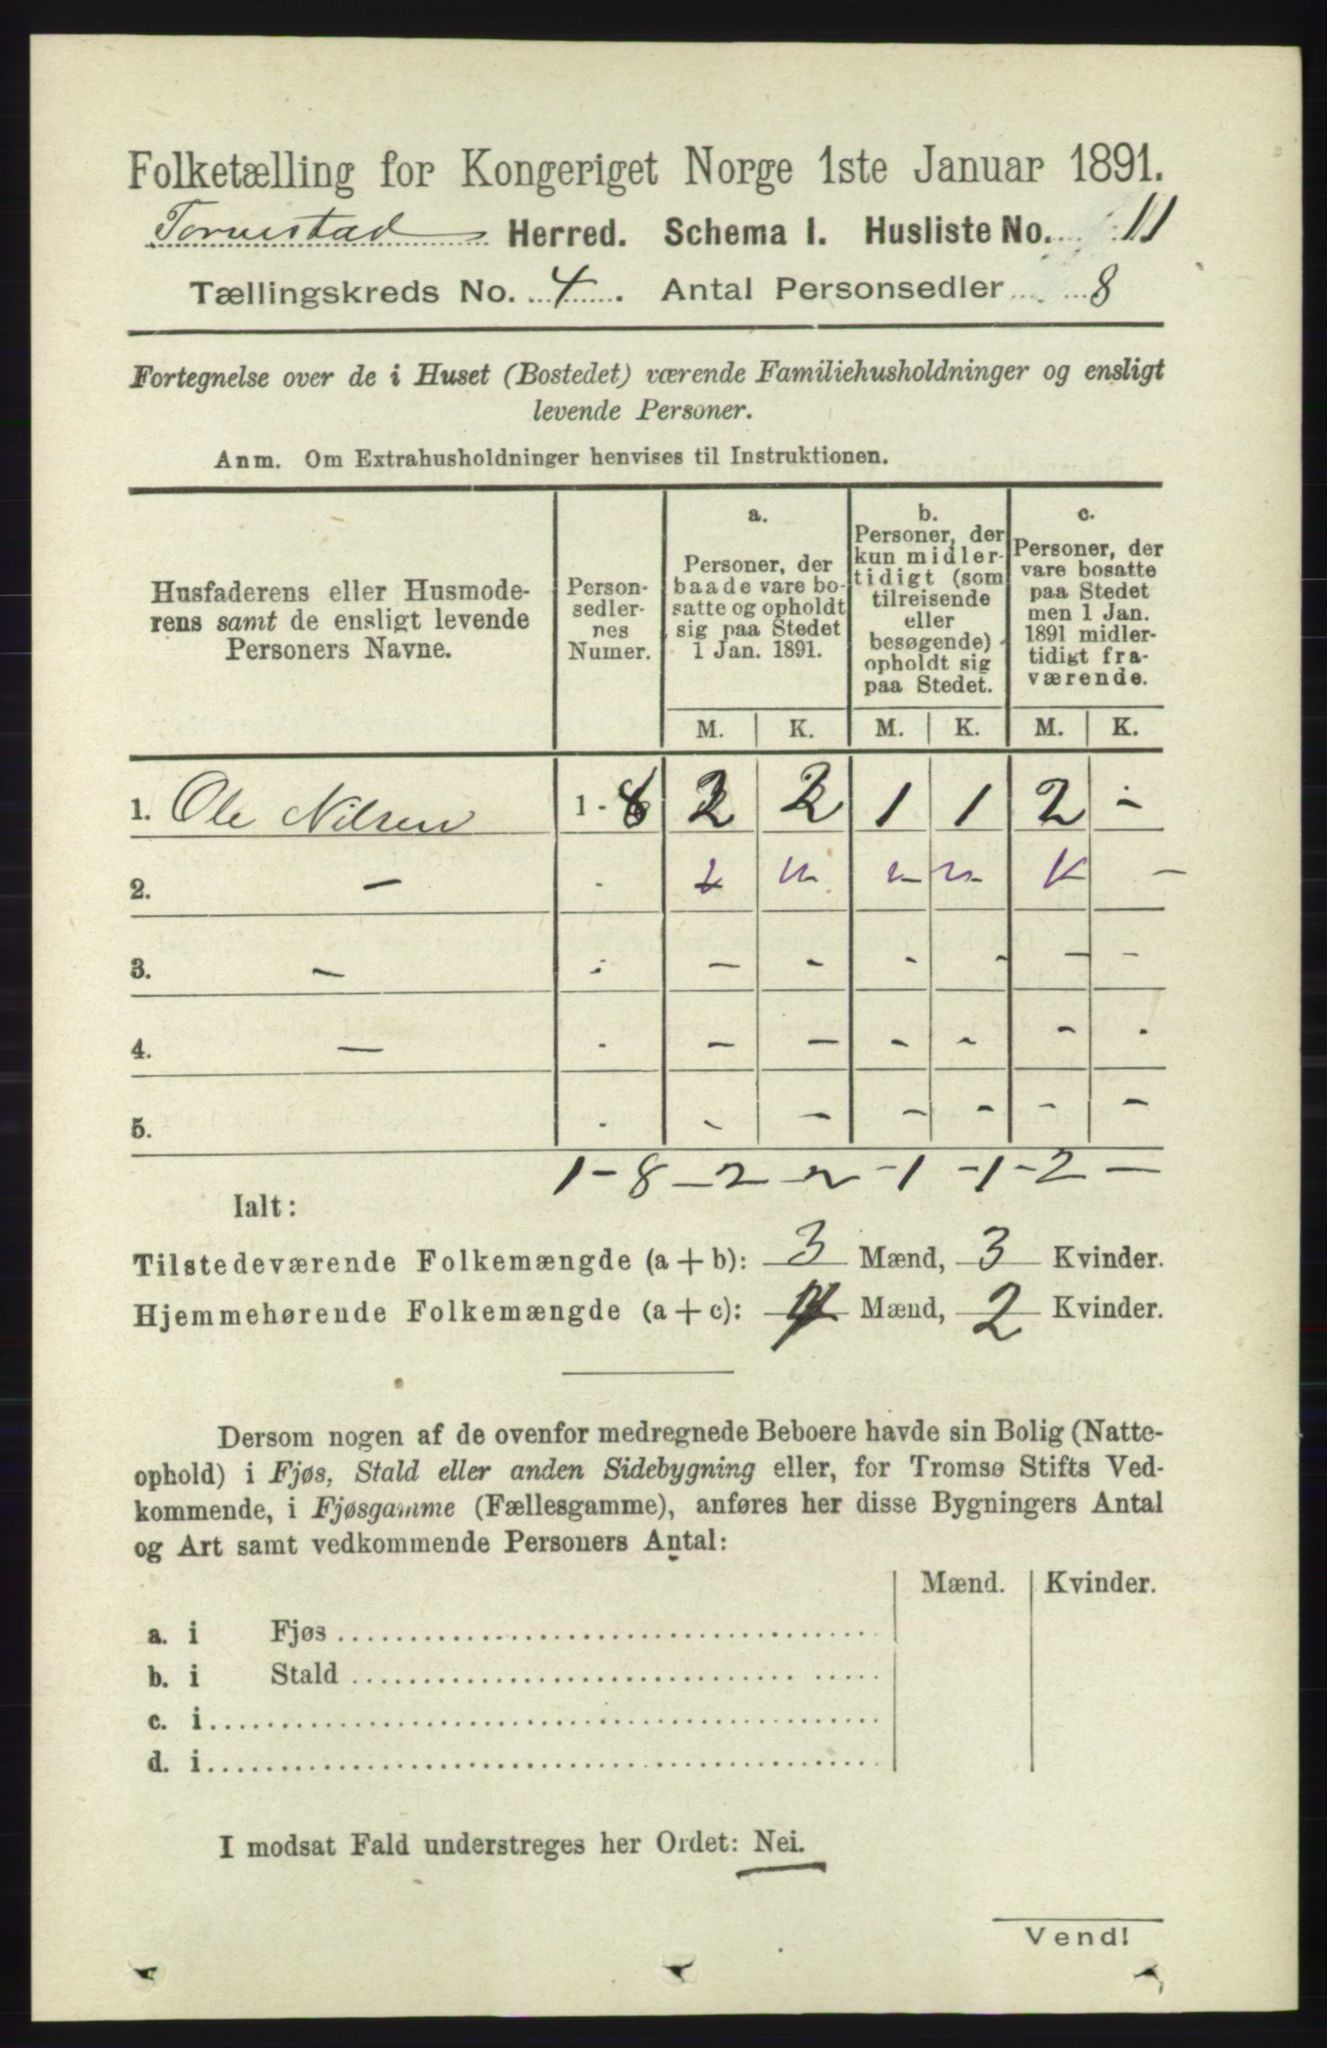 Folketælling for Kongeriget Norge 1ste Januar 1891.
Torvestad Herred. Schema I. Husliste No. 11
Tællingskreds No. 4. Antal Personsedler 8
Fortegnelse over de i Huset (Bostedet) værende Familiehusholdninger og ensligt
levende Personer.
Anm. Om Extrahusholdninger henvises til Instruktionen.
Husfaderens eller Husmode-
rens samt de ensligt levende
Personers Navne.
Person-
sedler-
nes
Numer.
a.
Personer, der
baade vare bo-
satte og opholdt
sig paa Stedet
1 Jan. 1891.
b.
Personer, der
kun midler-
tidigt (som
tilreisende
eller
besøgende)
opholdt sig
paa Stedet.
c.
Personer, der
vare bosatte
paa Stedet
men 1 Jan.
1891 midler-
tidigt fra-
værende.
M. K. M. K. M. K.
1. Ole Nilsen 1 - 8 2 2 1 1 2 -
2. - - -
3. - - - - - - - -
4. - - - - - - - -
5. - - - - - - -
1 - 8 - 2 - 2 - 1 - 1 - 2 -
Ialt:
Tilstedeværende Folkemængde (a + b): 3 Mænd, 3 Kvinder.
Hjemmehørende Folkemængde (a + c): 4 Mænd, 2 Kvinder.
Dersom nogen af de ovenfor medregnede Beboere havde sin Bolig (Natte-
ophold) i Fjøs, Stald eller anden Sidebygning eller, for Tromsø Stifts Ved-
kommende, i Fjøsgamme (Fællesgamme), anføres her disse Bygningers Antal
og Art samt vedkommende Personers Antal:
Mænd. Kvinder.
a. i Fjøs
b. i Stald
c. i
d. i
I modsat Fald understreges her Ordet: Nei.
Vend!